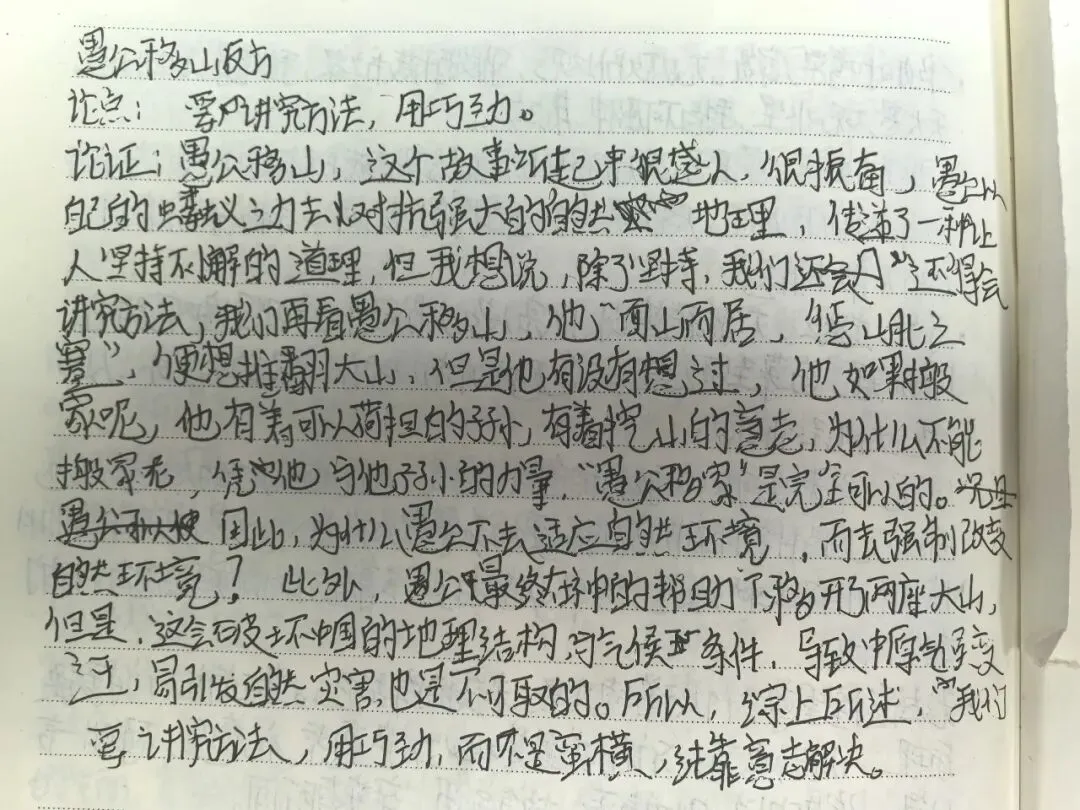 愚公移山反方
论点：要讲究方法，用巧劲。
论证：愚公移山，这个故事听起来很感人，很振奋，愚公以
自己的蝼蚁之力去对抗强大的自然地理，传递了一种让
人坚持不懈的道理，但我想说，除了坚持，我们还得会
讲究方法，我们再看愚公移山，他“面山而居，惩山北之
塞”，便想推翻大山，但是他有没有想过，他如果搬
家呢，他有着可以荷担的子孙，有着挖山的意志，为什么不能
搬家呢，凭他与他子孙的力量，“愚公移家”是完全可以的。
因此，为什么愚公不去适应自然环境，而去强制改变
自然环境？此外，愚公最终在神的帮助下移开了两座大山，
但是，这会破坏中国的地理结构与气候条件，导致中原气候变
迁，易引发自然灾害，也是不可取的。所以，综上所述，我们
要讲究方法，用巧劲，而不是蛮横，纯靠意志解决。